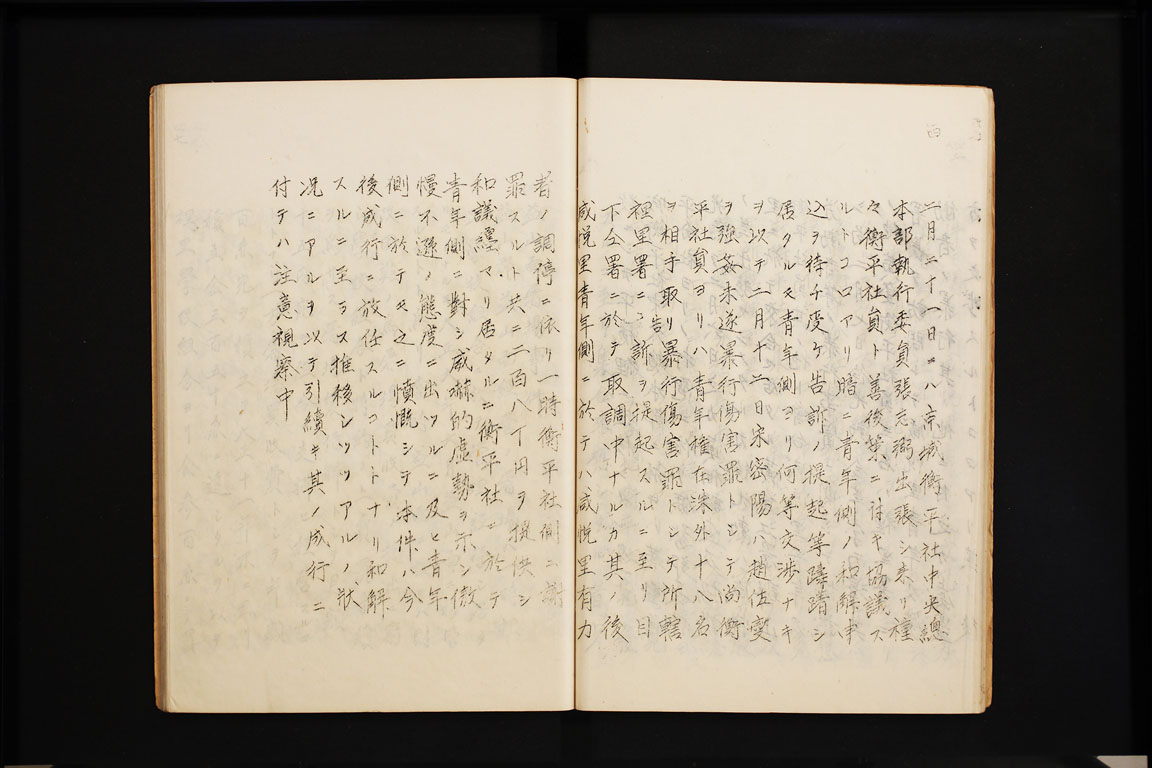 二月二十一日ニハ京城衡平社中央總
本部執行委員張志弼出張シ来リ種
々衡平社員ト善後策ニ付キ協議ス
ルトコロアリ暗ニ青年側ノ和解申
込ヲ待チ受ケ告訴ノ提起等躊躇シ
居タルモ青年側ヨリ何等交渉ナキ
ヲ以テ二月十二日宋密陽ハ趙佐燮
ヲ強姦未遂暴行傷害罪トシテ尚衡
平社員ヨリハ青年権在洙外十八名
ヲ相手取リ暴行傷害罪トシテ所轄
裡里署ニ告訴ヲ提起スルニ至リ目
下仝署ニ於テ取調中ナルカ其ノ後
咸悦里青年側ニ於テハ咸悦里有力
者ノ調停ニ依リ一時衡平社側ニ謝
罪スルト共ニ二百八十円ヲ提供シ
和議纏マリ居タルニ衡平社ニ於テ
青年側ニ對シ威嚇的虚勢ヲ示シ傲
慢不遜ノ態度ニ出ツルニ及ヒ青年
側ニ於テモ之ニ憤慨シテ本件ハ今
後成行ニ放任スルコトトナリ和解
スルニ至ラス推移シツツアルノ状
况ニアルヲ以テ引續キ其ノ成行ニ
付テハ注意視察中